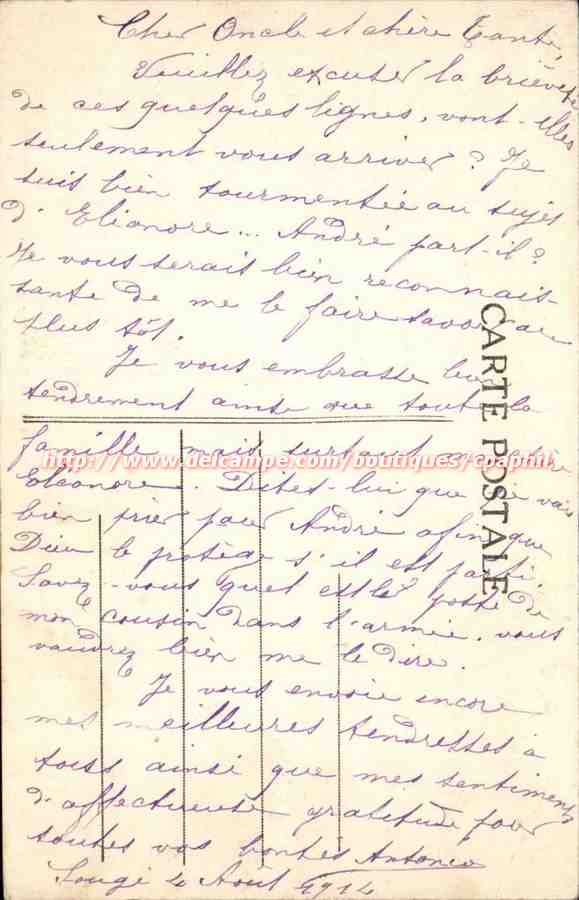 Cher Oncle et chère Tante,
Veuillez excuser la brièveté
de ces quelques lignes, vont-elles
seulement vous arriver ? Je
suis bien tourmentée au sujet
d'Eléonore ... André part-il ?
Je vous serais bien reconnais-
sante de me le faire savoir au
plus tôt.
Je vous embrasse bien
tendrement ainsi que toute la
famille mais surtout
Eléonore. Dites-lui que je vais
bien prier pour André afin que
Dieu le protège s'il est parti.
Savez-vous quel est le poste de
mon cousin dans l'armée. vous
voudrez bien me le dire.
Je vous envoie encore
mes meilleures tendresses à
tous ainsi que mes sentiments
d'affectueuse gratitude pour
toutes vos bontés
4 Août 1914
CARTE POSTALE
http://www.delcampe.com/boutiques/cpaphil